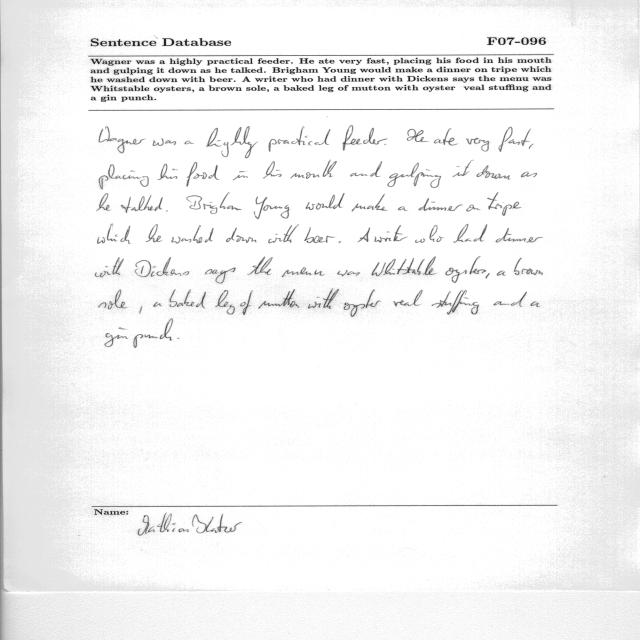 Sentence Database F07-096
Wagner was a highly practical feeder. He ate very fast, placing his food in his mouth
and gulping it down as he talked. Brigham Young would make a dinner on tripe which
he washed down with beer. A writer who had dinner with Dickens says the menu was
Whitstable oysters, a brown sole, a baked leg of mutton with oyster veal stuffing and
a gin punch.
Wagner was a highly practical feeder. He ate very fast,
placing his food in his mouth and gulping it down as
he talked. Brigham Young would make a dinner on tripe
which he washed down with beer. A writer who had dinner
with Dickens says the menu was Whitstable oysters, a brown
sole, a baked leg of mutton with oyster veal stuffing and a
gin punch.
Name: